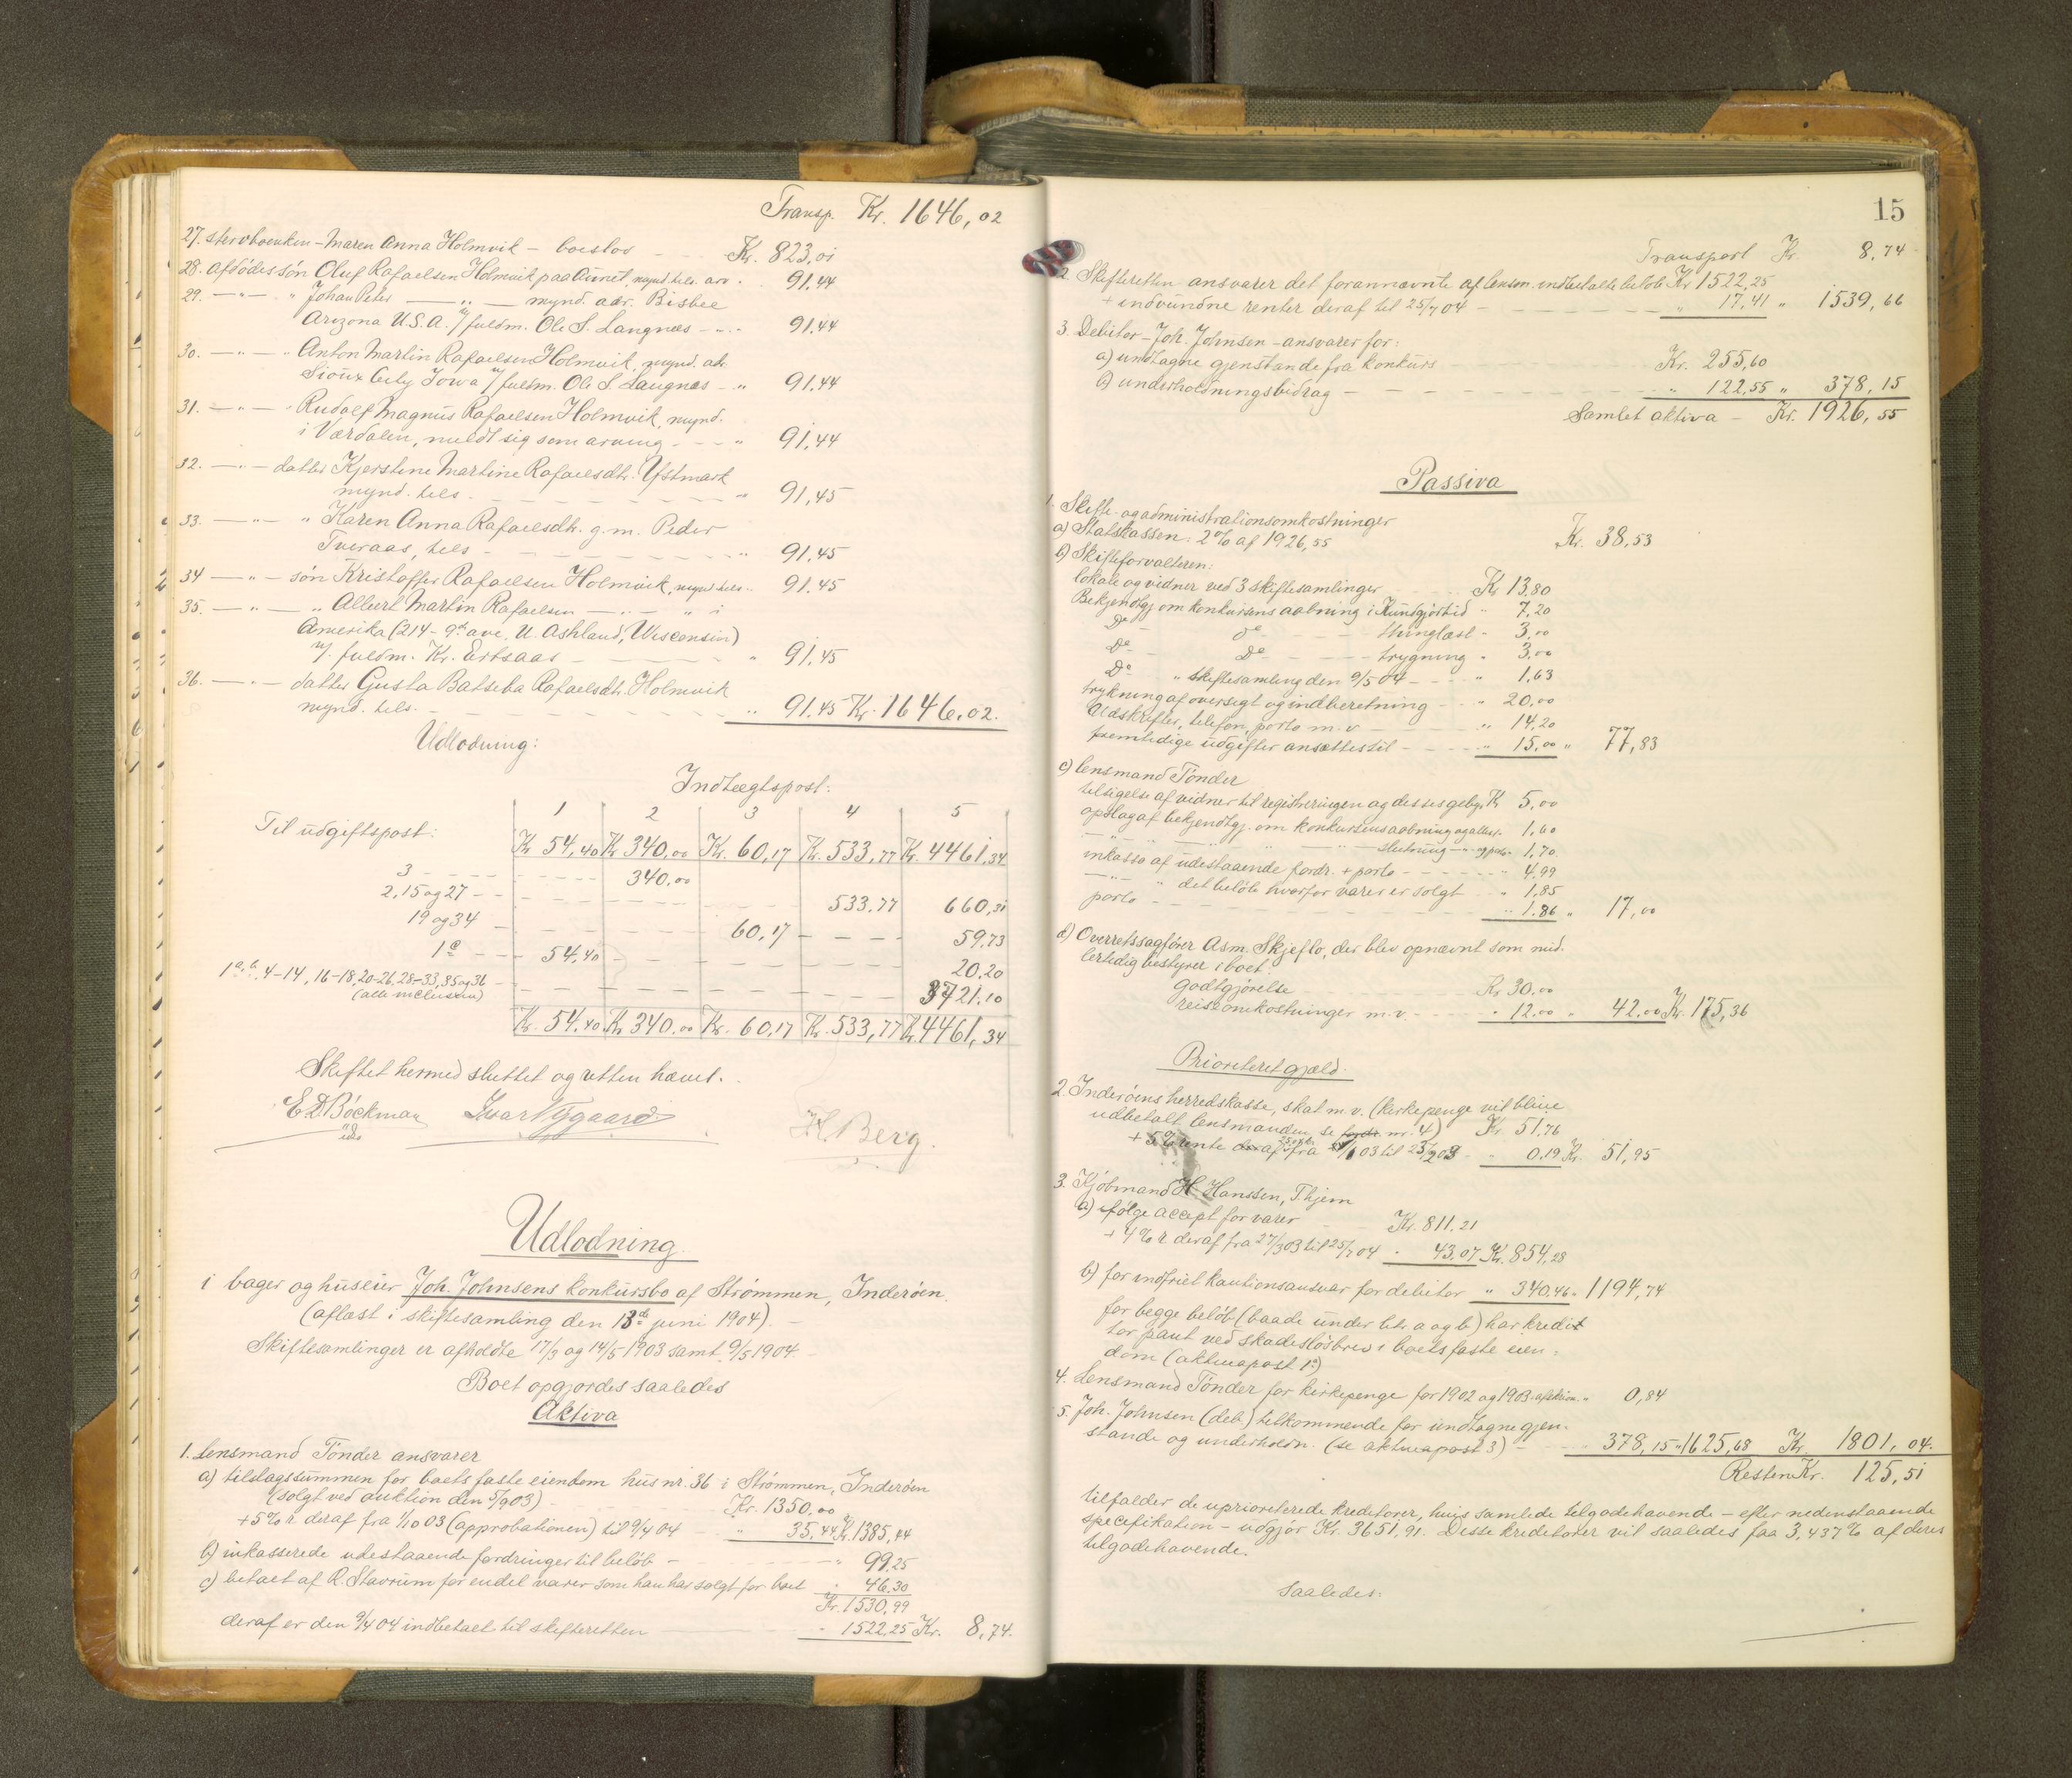 Transp. Kr. 1646,02
27. stervboenken - Maren Anna Holmvik - boeslod - Kr. 823,01
28. afdødes søn Oluf Rafaelsen Holmvik paa Aunet, mynd. tils. arv. 91,44
29. —"— " Johan Peter —— " —— mynd. adr. Bisbee
Arizona U.S.A. v/ fuldm. Ole S. Langnæs - " 91,44
30. —"— " Anton Martin Rafaelsen Holmvik, mynd. adr.
Sioux City Iowa v/ fuldm. Ole S. Langnæs - " 91,44
31. —"— " Rudolf Magnus Rafaelsen Holmvik, mynd.
i Værdalen, meldt sig som arving - " 91,44
32. —"— datter Kjerstine Martine Rafaelsdtr. Ystmark
mynd. tils. " 91,45
33. —"— " Karen Anna Rafaelsdtr. g.m. Peder
Tveraas, tils - " 91,45
34 —"— søn Kristoffer Rafaelsen Holmvik, mynd. tils. " 91,45
35. —"— " Albert Martin Rafaelsen —"— " i
Amerika (214 - 9th ave. U. Ashland, Wisconsin)
v/. fuldm. Kr. Ertsaas - " 91,45
36. —"— datter Gusta Batseba Rafaelsdtr. Holmvik
mynd. tils. - " 91,45 Kr. 1646,02.
Udlodning:
Indtægtspost:
Til udgiftspost: 1 2 3 4 5
Kr 54,40 Kr 340,00 Kr. 60,17 Kr. 533,77 Kr. 4461,34
3 - 340,00
2, 15 og 27 - 533,77 660,31
19 og 34 - 60,17 59,73
1c - 54,40 20,20
1a,b, 4-14, 16-18, 20-26, 28-33, 35 og 36 - 3721,10
(alle inclusive)
Kr. 54,40 Kr 340,00 Kr. 60,17 Kr. 533,77 Kr. 4461,34
Skiftet hermed sluttet og retten hævet.
E. D. Bóckman Ivar Nygaard H. Berg.
Udlodning
i bager og huseier Joh. Johnsens konkursbo af Strømmen, Inderøen.
(aflæst i skiftesamling den 13de juni 1904).
Skiftesamlinger er afholdte 17/3 og 14/5 1903 samt 9/5 1904.
Boet opgjordes saaledes
Aktiva
1. Lensmand Tønder ansvarer
a) tilslagssummen for boets faste eiendom hus nr. 36 i Strømmen, Inderøen
(solgt ved auktion den 5/9 03) - Kr. 1350,00
+ 5% r. deraf fra 1/10 03 (approbationen) til 9/4 04 - " 35,44 Kr. 1385,44
b) inkasserede udestaaende fordringer til beløb - " 99,25
c) betalt af R. Stavrum for endel varer som han har solgt for boet " 46,30
Kr. 1530,99
deraf er den 9/4 04 indbetalt til skifteretten " 1522,25 Kr. 8,74.
15
Transport Kr. 8,74
2. Skifteretten ansvarer det forannævnte af lensm. indbetalte beløb Kr 1522,25
+ indvundne renter deraf til 25/7 04 - " 17,41 " 1539,66
3. Debitor - Joh. Johnsen - ansvarer for:
a) undtagne gjenstande fra konkurs Kr. 255,60
b) underholdningsbidrag - " 122,55 " 378,15
Samlet aktiva - Kr. 1926,55
Passiva
1. Skifte- og administrationsomkostninger
a) Statskassen: 2% af 1926,55 Kr. 38,53
b) Skifteforvalteren:
lokale og vidner ved 3 skiftesamlinger Kr 13,80
Bekjendtgj om konkursens aabning i Kundgjørtid " 7,20
Do Do thinglæst - 3,00
Do Do trygning " 3,00
Do " skiftesamling den 9/5 04 - " 1,63
trykning af oversigt og indberetning - " 20,00
Udskrifter, telefon, porto m.v - " 14,20
fremtidige udgifter ansættes til - " 15,00 " 77,83
c) lensmand Tønder
tilsigelse af vidner til registreringen og disses gebyr Kr 5,00
opslag af bekjendtgj. om konkursens aabning og attest. 1,60
—"— " " " slutning —"— og porto 1,70
inkasso af udestaaende fordr. + porto - " 4,99
—"— " det beløb hvorfor varer er solgt " 1,85
porto " 1,86 " 17,00
d) Overretssagfører Asm. Skjeflo, der blev opnævnt som mid-
lertidig bestyrer i boet:
godtgjørelse Kr 30,00
reiseomkostninger m.v. - " 12,00 " 42,00 Kr. 175,36
Prioriteret gjæld.
2. Inderøens herredskasse, skat m.v. (kirkepenge vil blive
udbetalt lensmanden, se fordr. nr. 4) Kr 51,76
+ 5% rente deraf fra 03 til 03 - " 0,19 Kr. 51,95
3. Kjøbmand H. Hanssen, T.hjem
a) ifølge accept for varer Kr. 811,21
+ 4% r. deraf fra 27/3 03 til 25/7 04 " 43,07 Kr. 854,28
b) for indfriet kautionsansvar for debitor " 340,46 " 1194,74
for begge beløb (baade under litr. a og b) har kredi-
tor pant ved skadesløsbrev i boets faste eien-
dom (aktivapost 1a)
4. Lensmand Tønder for kirkepenge for 1902 og 1903 " 0,84
5. Joh. Johnsen (deb.) tilkommende for undtagne gjen-
stande og underholdn. (se aktivapost 3) - 378,15 " 1625,68 Kr. 1801,04.
Resten Kr. 125,51
tilfalder de uprioriterede kreditorer, hvis samlede tilgodehavende - efter nedenstaaende
specifikation - udgjør Kr. 3651,91. Disse kreditorer vil saaledes faa 3,437% af deres
tilgodehavende.
Saaledes: